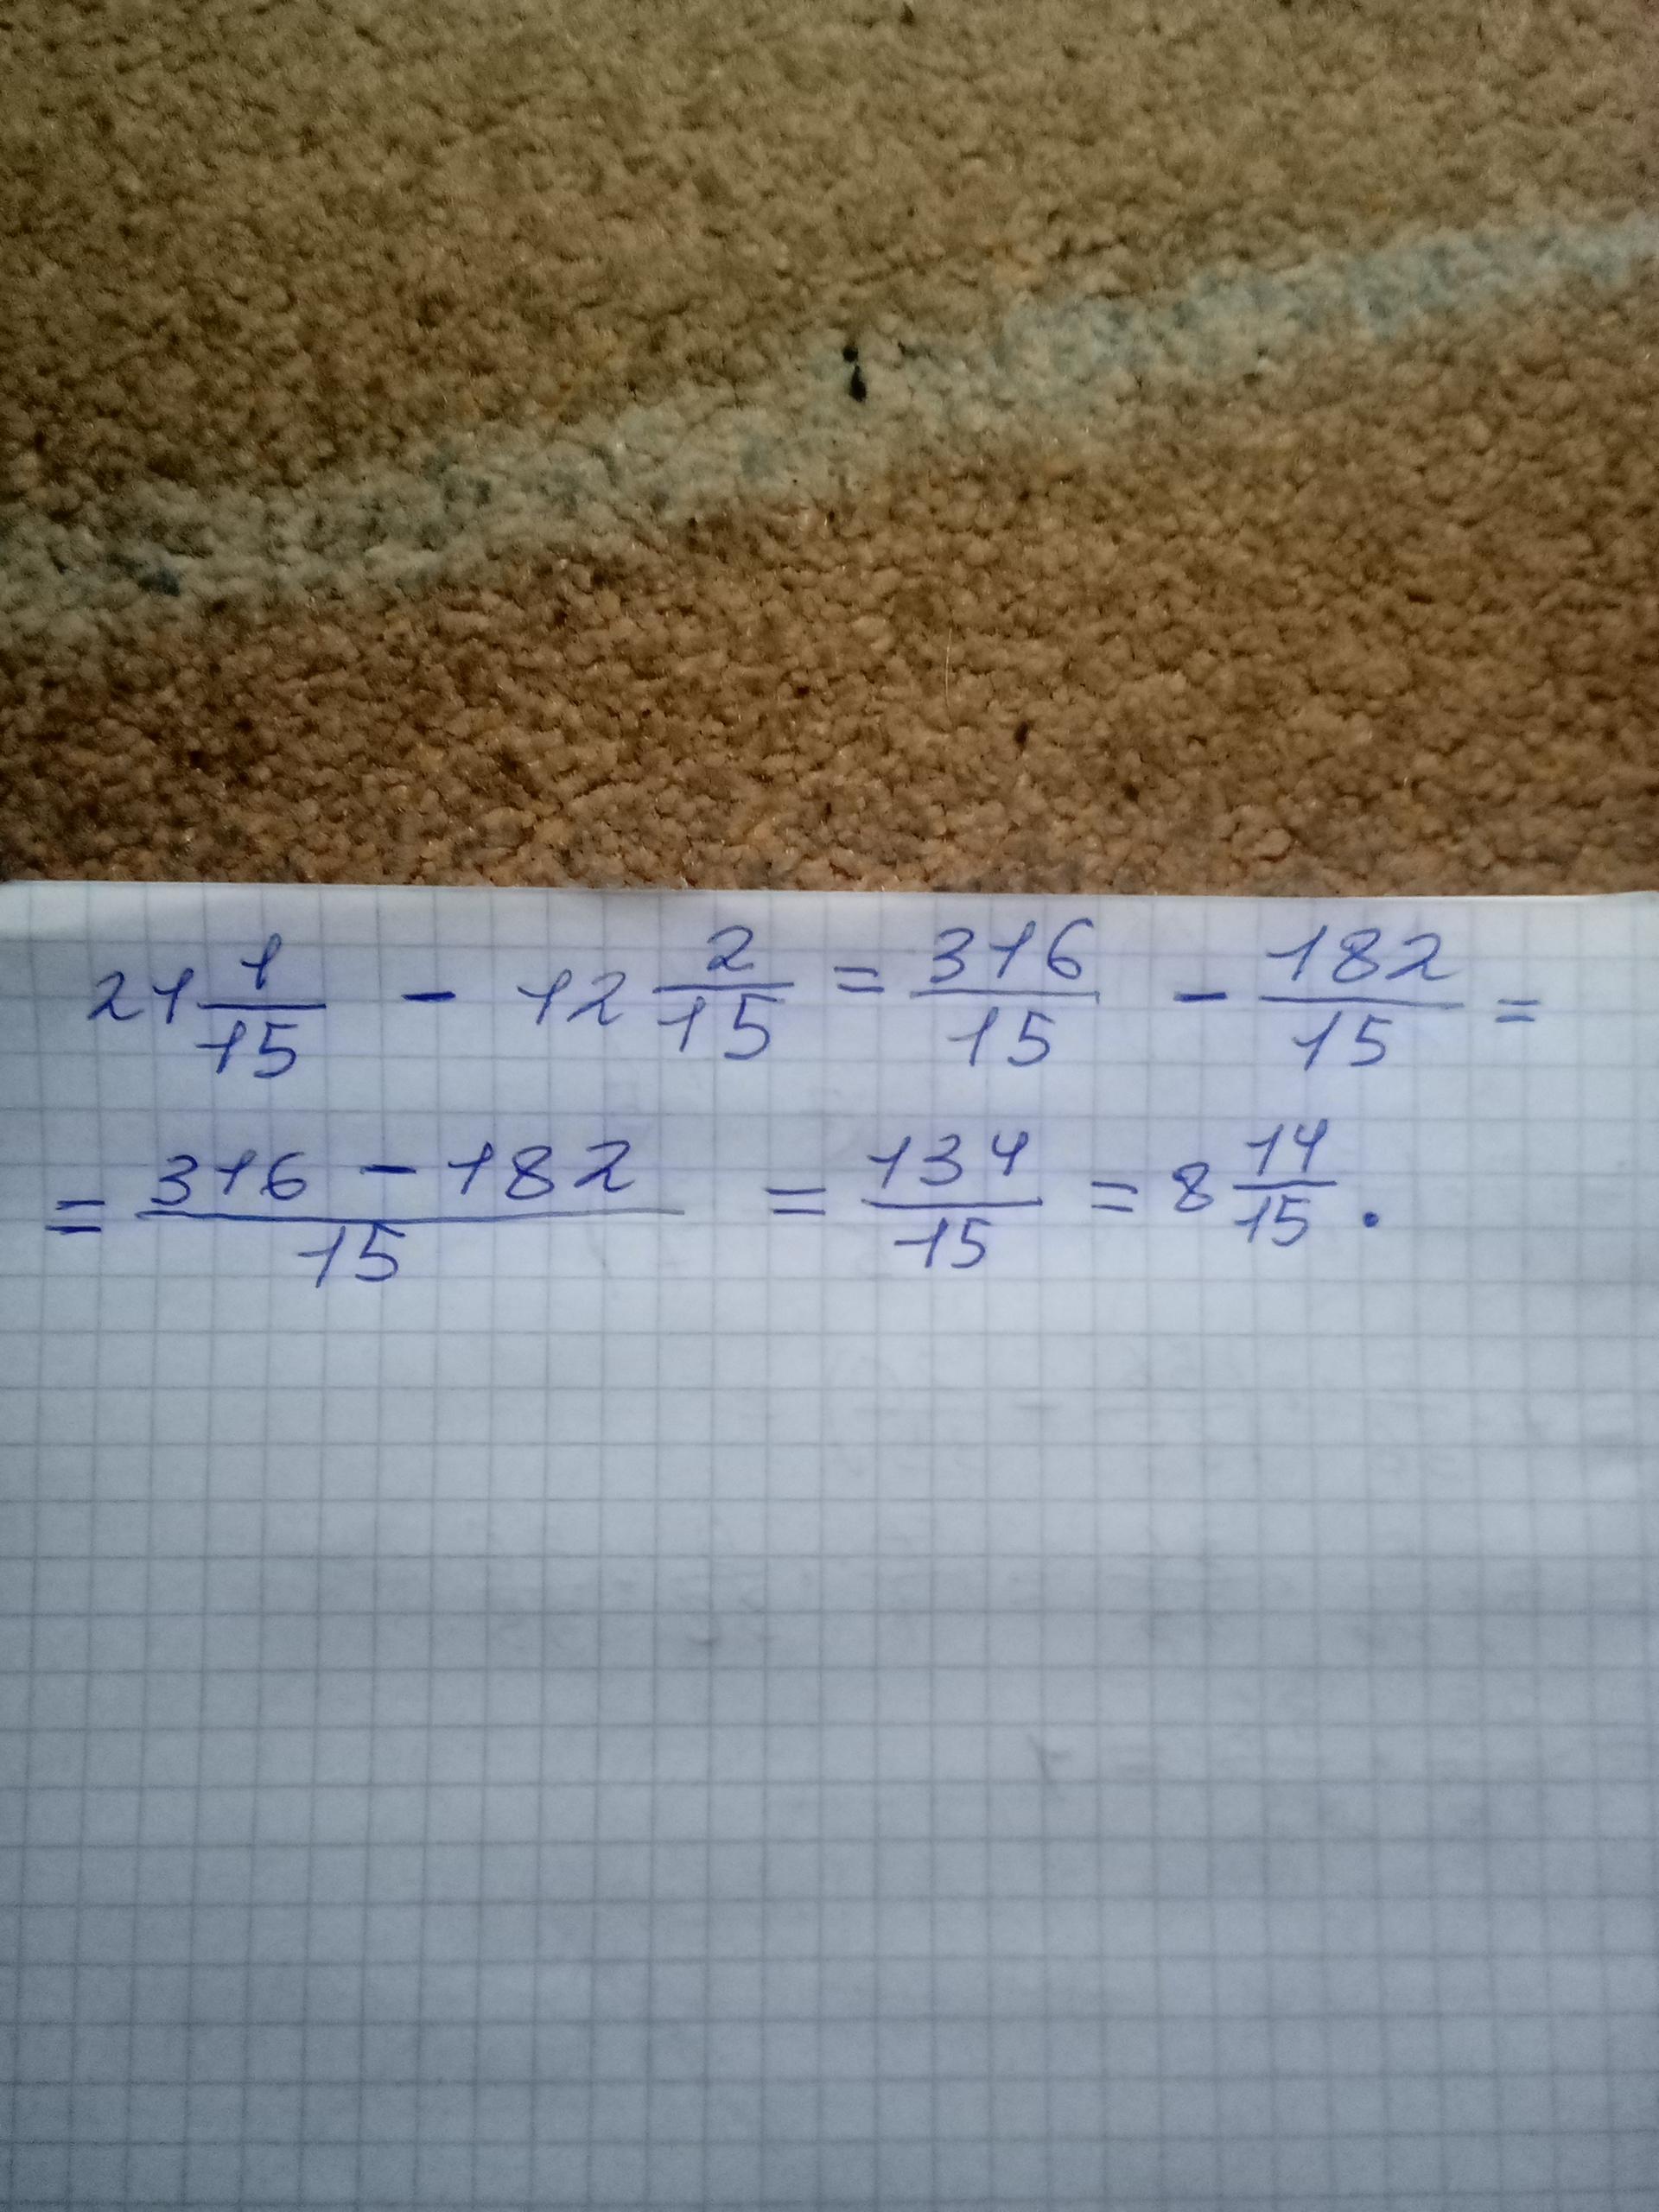 21 1/15 - 12 2/15 = 316/15 - 182/15 =
= (316 - 182)/15 = 134/15 = 8 14/15.